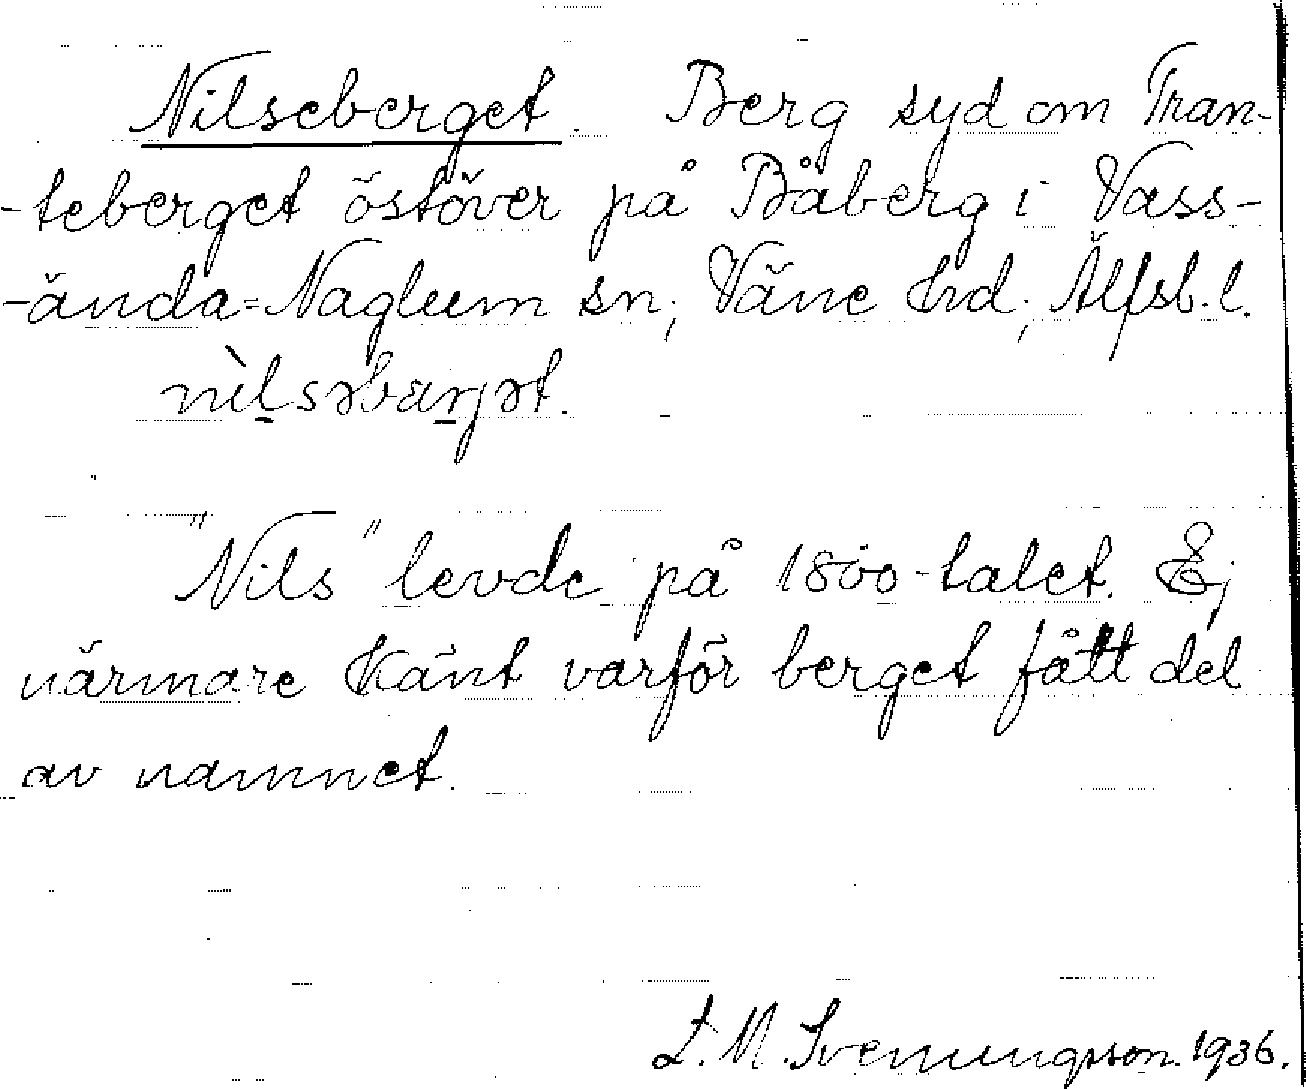 Nilseberget. Berg syd om Tran-
-teberget östöver på Båberg i Vass-
-ända=Naglum sn; Väne hd; Älfsb.l.
nìlsəbærjət.
"Nils" levde på 1800-talet. Ej
närmare känt varför berget fått del
av namnet.
L.M. Svenungsson. 1936.